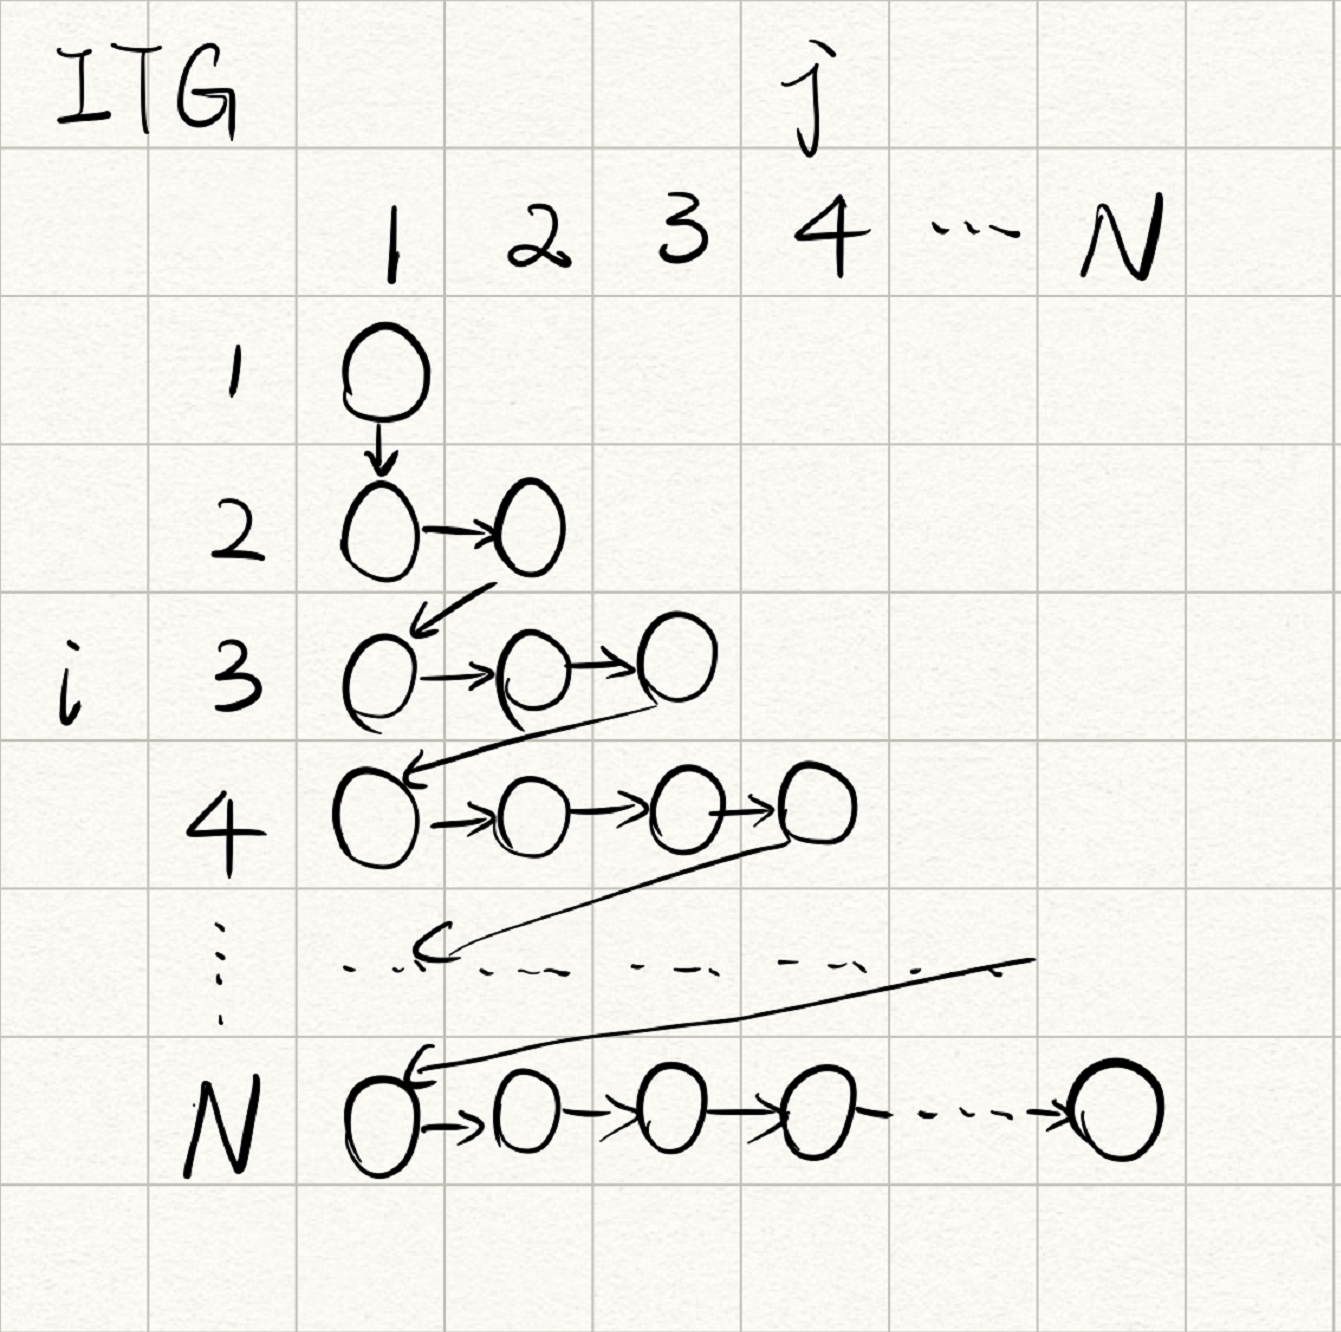 ITG j
1 2 3 4 ... N
1
2
i 3
4
⋮
N